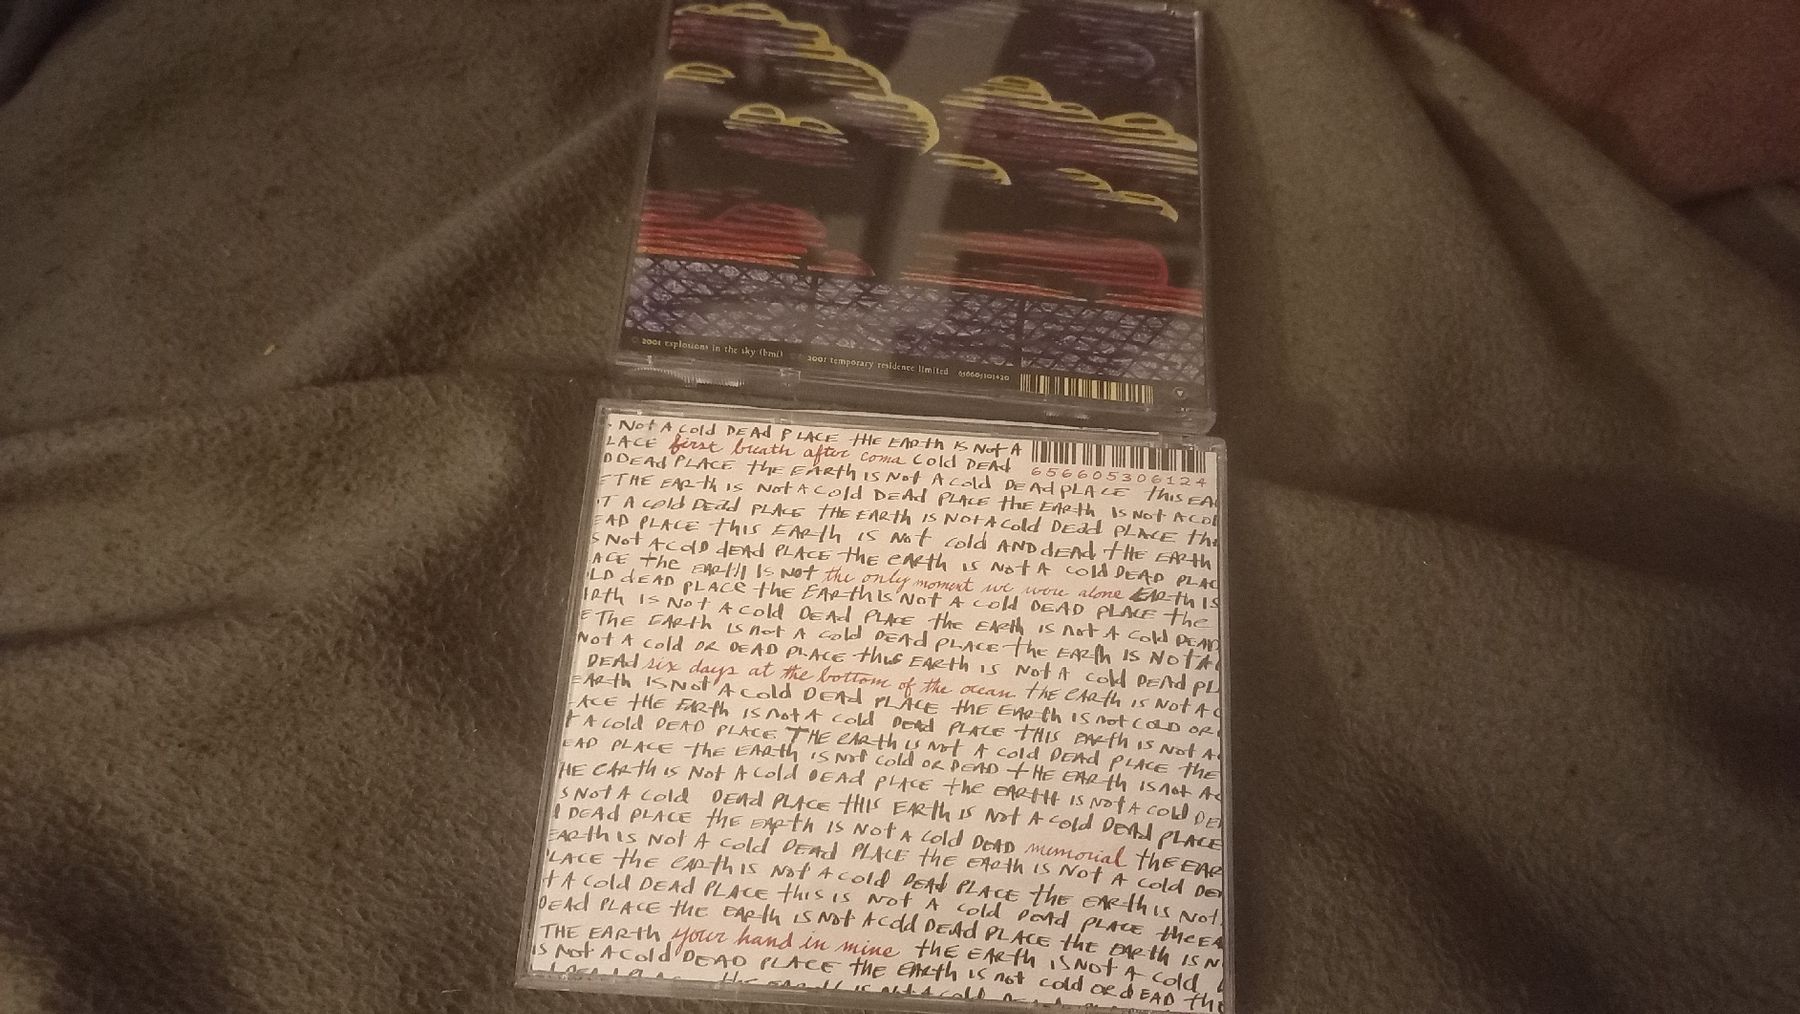 © 2001 explosions in the sky (bmi) 2001 temporary residence limited 656605301420
. Not A cold DEAd PLACE tHE EARtH IS Not A
LACE first breath after coma Cold DEAd
656605306124
DDEAd PLACE tHE EARtH IS Not A Cold DEAdPLACE tHIS EA
E THE EARtH IS Not A Cold DEAd PLACE tHE EARtH IS Not A Col
T A Cold DEAd PLACE tHE EARtH IS Not A Cold DEAd PLACE tH
EAD PLACE tHIS EARtH IS Not cold ANd dEAd tHE EARtH
S Not A Cold dEAd PLACE tHE eARtH IS Not A cold DEAD PLAC
ACE tHE EARtH IS Not the only moment we were alone EARtH IS
LD dEAD PLACE tHE EARtH IS Not A Cold DEAD PLACE tHE
RtH IS Not A Cold DEAd PLACE tHE EARtH IS Not A Cold DEAD
E THE EARtH IS Not A cold DEAd PLACE tHE EARtH IS Not A
Not A cold OR DEAd PLACE tHIS EARtH IS Not A Cold DEAd PL
DEAd six days at the bottom of the ocean tHE EARtH IS Not A C
EARtH IS Not A Cold DEAD PLACE tHE EARtH IS Not COLD OR
ACE tHE EARtH IS Not A cold DEAd PLACE tHIS EARtH IS Not A
t A Cold DEAD PLACE THE EARtH IS Not A Cold DEAd PLACE tHE
EAD PLACE tHE EARtH IS Not Cold OR DEAD tHE EARtH IS Not A C
HE EARtH IS Not A Cold DEAd PLACE tHE EARtH IS Not A Cold DE
S Not A Cold DEAd PLACE tHIS EARtH IS Not A cold DEAd PLACE
d DEAd PLACE tHE EARtH IS Not A Cold DEAD memorial tHE EAR
EARtH IS Not A Cold DEAd PLACE tHE EARtH IS Not A cold DE
LACE tHE EARtH IS Not A Cold DEAd PLACE tHE EARtH IS Not
t A Cold DEAd PLACE tHIS IS Not A Cold DEAd PLACE tHE EA
DEAd PLACE tHE EARtH IS Not A Cold DEAd PLACE tHE EARtH IS N
THE EARtH your hand in mine tHE EARtH IS Not A Cold
IS Not A Cold DEAD PLACE tHE EARtH IS not cold OR dEAD tHE